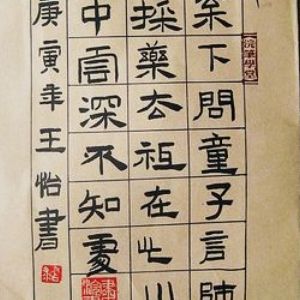 浣筆學堂
松下問童子言師
採藥去祖在此山
中雲深不知處
庚寅年王怡書